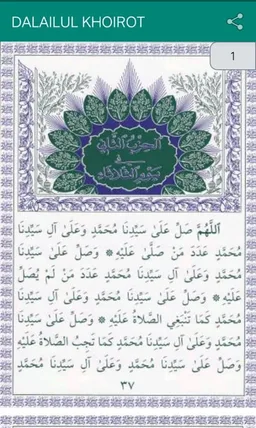 DALAILUL KHOIROT
1
الحزب الثاني
في
يوم الثلاثاء
اَللّٰهُمَّ صَلِّ عَلَىٰ سَيِّدِنَا مُحَمَّدٍ وَعَلَىٰ آلِ سَيِّدِنَا
مُحَمَّدٍ عَدَدَ مَنْ صَلَّىٰ عَلَيْهِ * وَصَلِّ عَلَىٰ سَيِّدِنَا
مُحَمَّدٍ وَعَلَىٰ آلِ سَيِّدِنَا مُحَمَّدٍ عَدَدَ مَنْ لَمْ يُصَلِّ
عَلَيْهِ * وَصَلِّ عَلَىٰ سَيِّدِنَا مُحَمَّدٍ وَعَلَىٰ آلِ سَيِّدِنَا
مُحَمَّدٍ كَمَا تَنْبَغِي الصَّلاَةُ عَلَيْهِ * وَصَلِّ عَلَىٰ سَيِّدِنَا
مُحَمَّدٍ وَعَلَىٰ آلِ سَيِّدِنَا مُحَمَّدٍ كَمَا تَجِبُ الصَّلاَةُ عَلَيْهِ
وَصَلِّ عَلَىٰ سَيِّدِنَا مُحَمَّدٍ وَعَلَىٰ آلِ سَيِّدِنَا مُحَمَّدٍ
٣٧